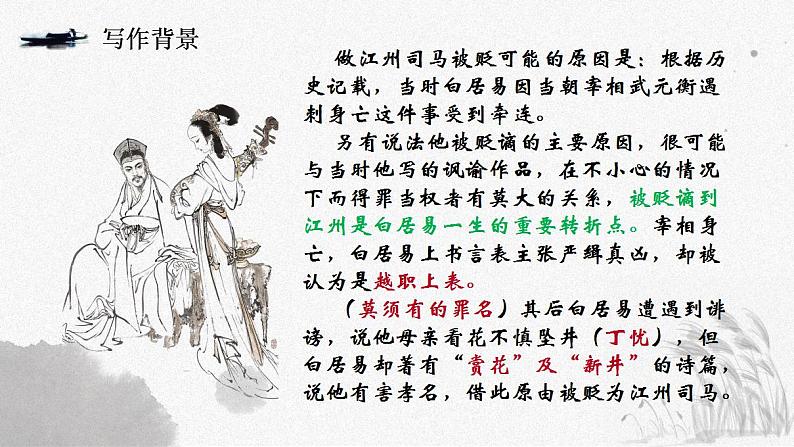 写作背景
做江州司马被贬可能的原因是：根据历
史记载，当时白居易因当朝宰相武元衡遇
刺身亡这件事受到牵连。
另有说法他被贬谪的主要原因，很可能
与当时他写的讽谕作品，在不小心的情况
下而得罪当权者有莫大的关系，被贬谪到
江州是白居易一生的重要转折点。宰相身
亡，白居易上书言表主张严缉真凶，却被
认为是越职上表。
（莫须有的罪名）其后白居易遭遇到诽
谤，说他母亲看花不慎坠井（丁忧），但
白居易却著有“赏花”及“新井”的诗篇，
说他有害孝名，借此原由被贬为江州司马。